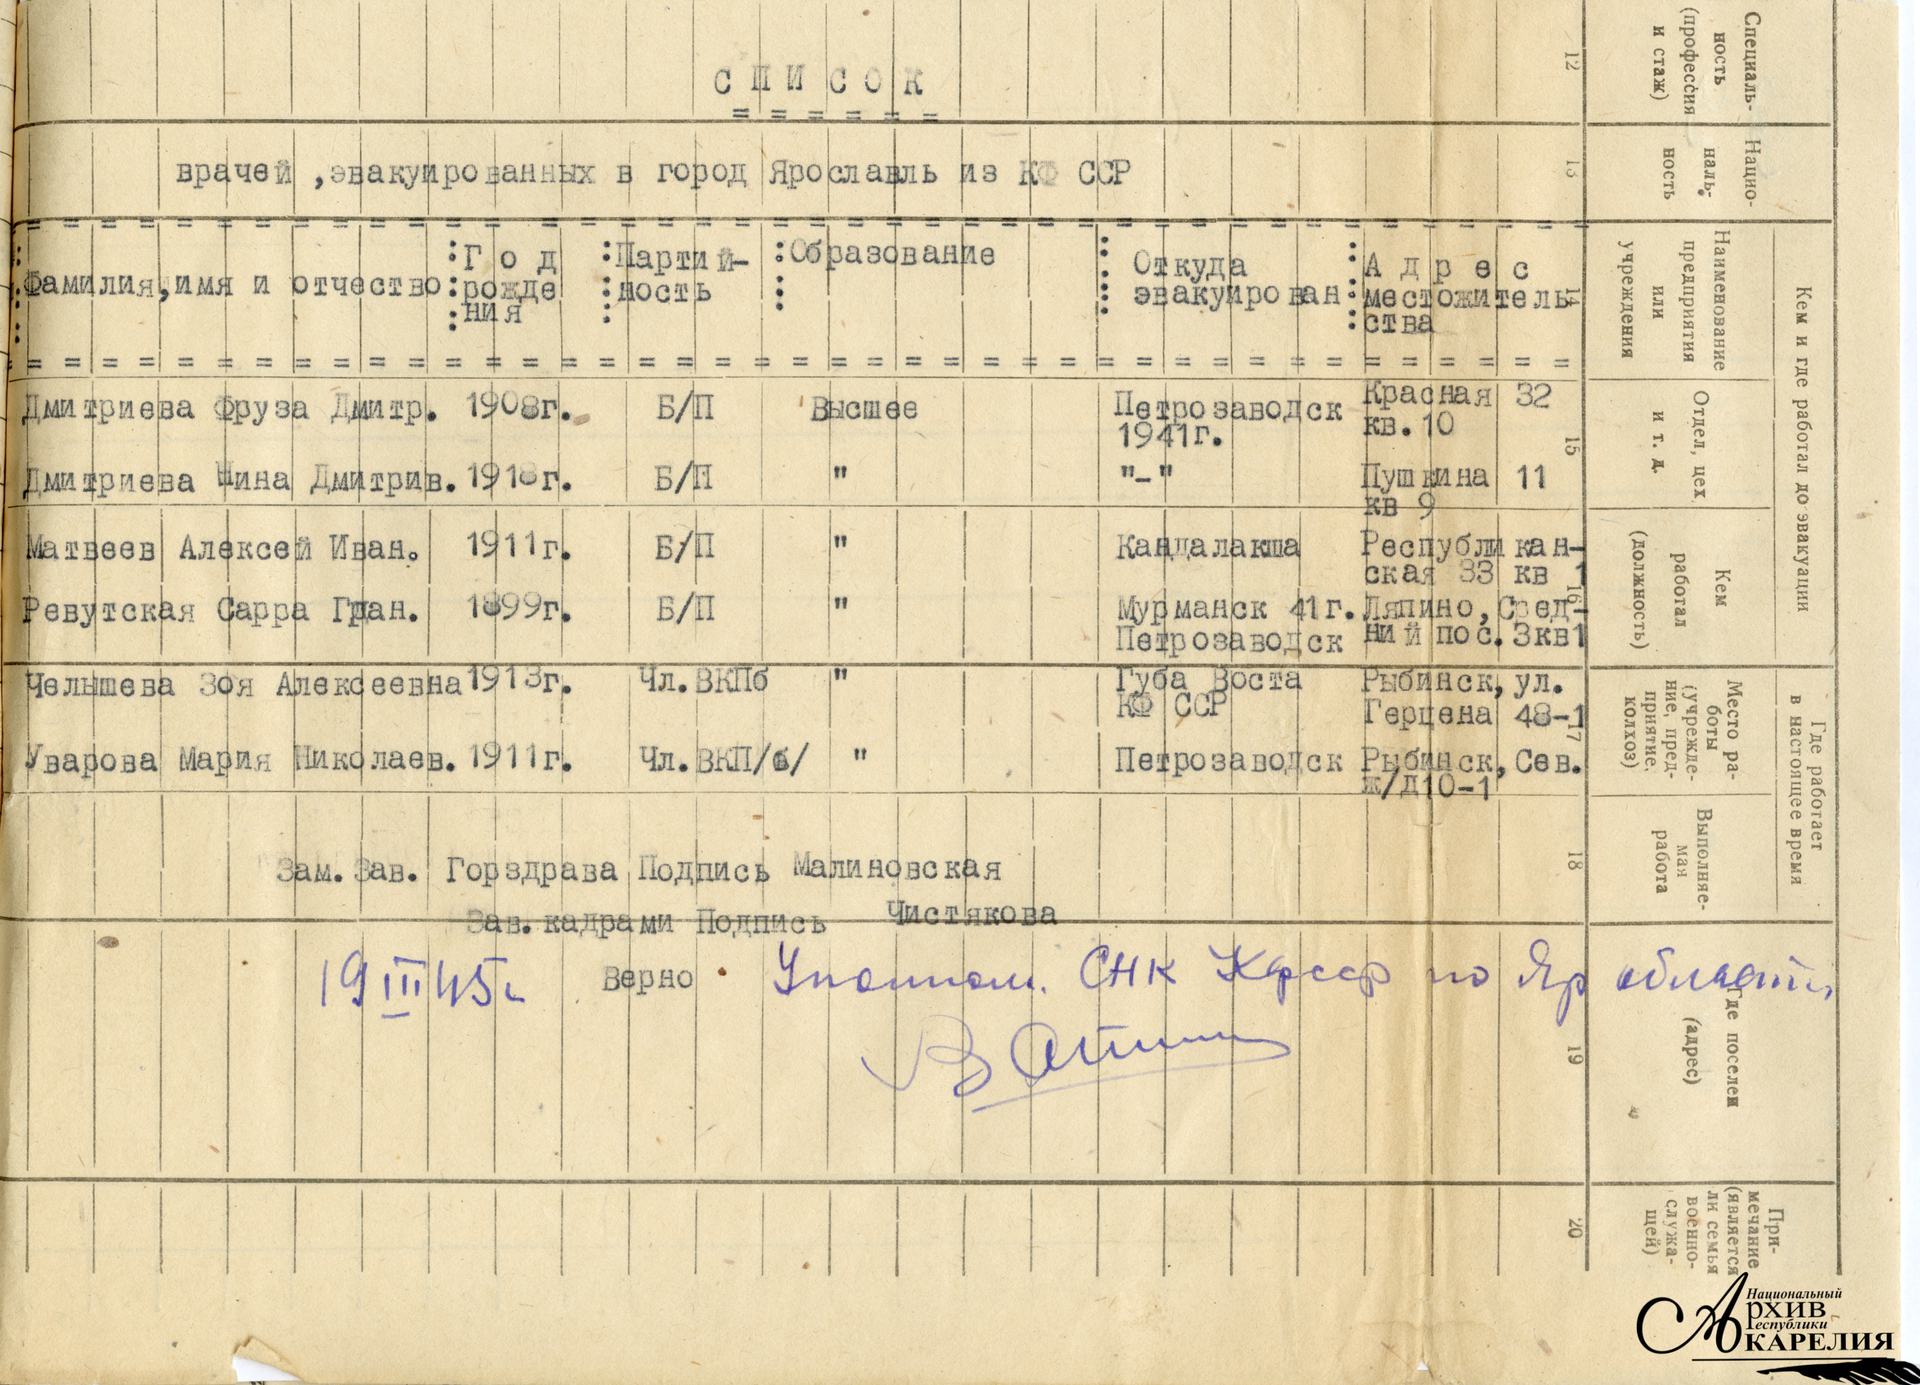 СПИСОК
врачей ,эвакуированных в город Ярославль из КФ ССР
Фамилия,имя и отчество : Год рожде ния : Партий- ность : Образование : Откуда эвакуирован : Адрес местожитель ства
Дмитриева Фруза Дмитр. 1908г. Б/П Высшее Петрозаводск 1941г. Красная 32 кв.10
Дмитриева Нина Дмитрив. 1918г. Б/П " "-" Пушкина 11 кв 9
Матвеев Алексей Иван. 1911г. Б/П " Кандалакша Республикан- ская 33 кв 1
Ревутская Сарра 1899г. Б/П " Мурманск 41г. Петрозаводск Ляпино,Сред- ний пос.3кв1
Челышева Зоя Алексеевна 1913г. Чл.ВКПб " Губа Воста КФ ССР Рыбинск,ул. Герцена 48-1
Уварова Мария Николаев. 1911г. Чл.ВКП/б/ " Петрозаводск Рыбинск,Сев. ж/д10-1
Зам.Зав. Горздрава Подпись Малиновская
Зав.кадрами Подпись Чистякова
19 III 45г Верно Уполном. СНК Кфсср по Яр области
Специаль-
ность
(профессия
и стаж)
12
Нацио-
наль-
ность
13
Кем и где работал до эвакуации
Наименование
предприятия
или
учреждения
14
Отдел, цех
и т. д.
15
Кем
работал
(должность)
16
Где работает
в настоящее время
Место ра-
боты
(учрежде-
ние, пред-
приятие,
колхоз)
17
Выполняе-
мая
работа
18
Где поселен
(адрес)
19
При-
мечание
(является
ли семья
военно-
служа-
щей)
20
Национальный
Архив
Республики
Карелия